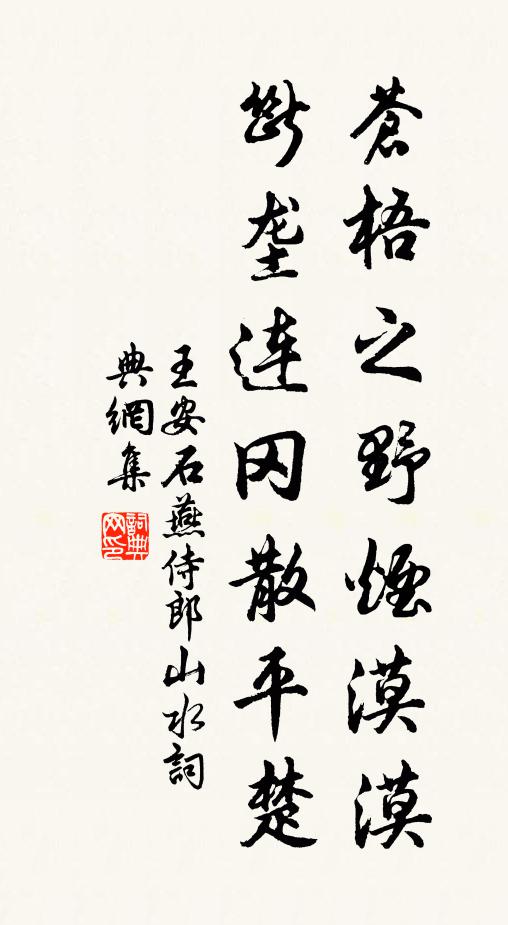 蒼梧之野煙漠漠
斷垄連冈散平楚
王安石燕侍郎山水詞
典網集
詞典
网印